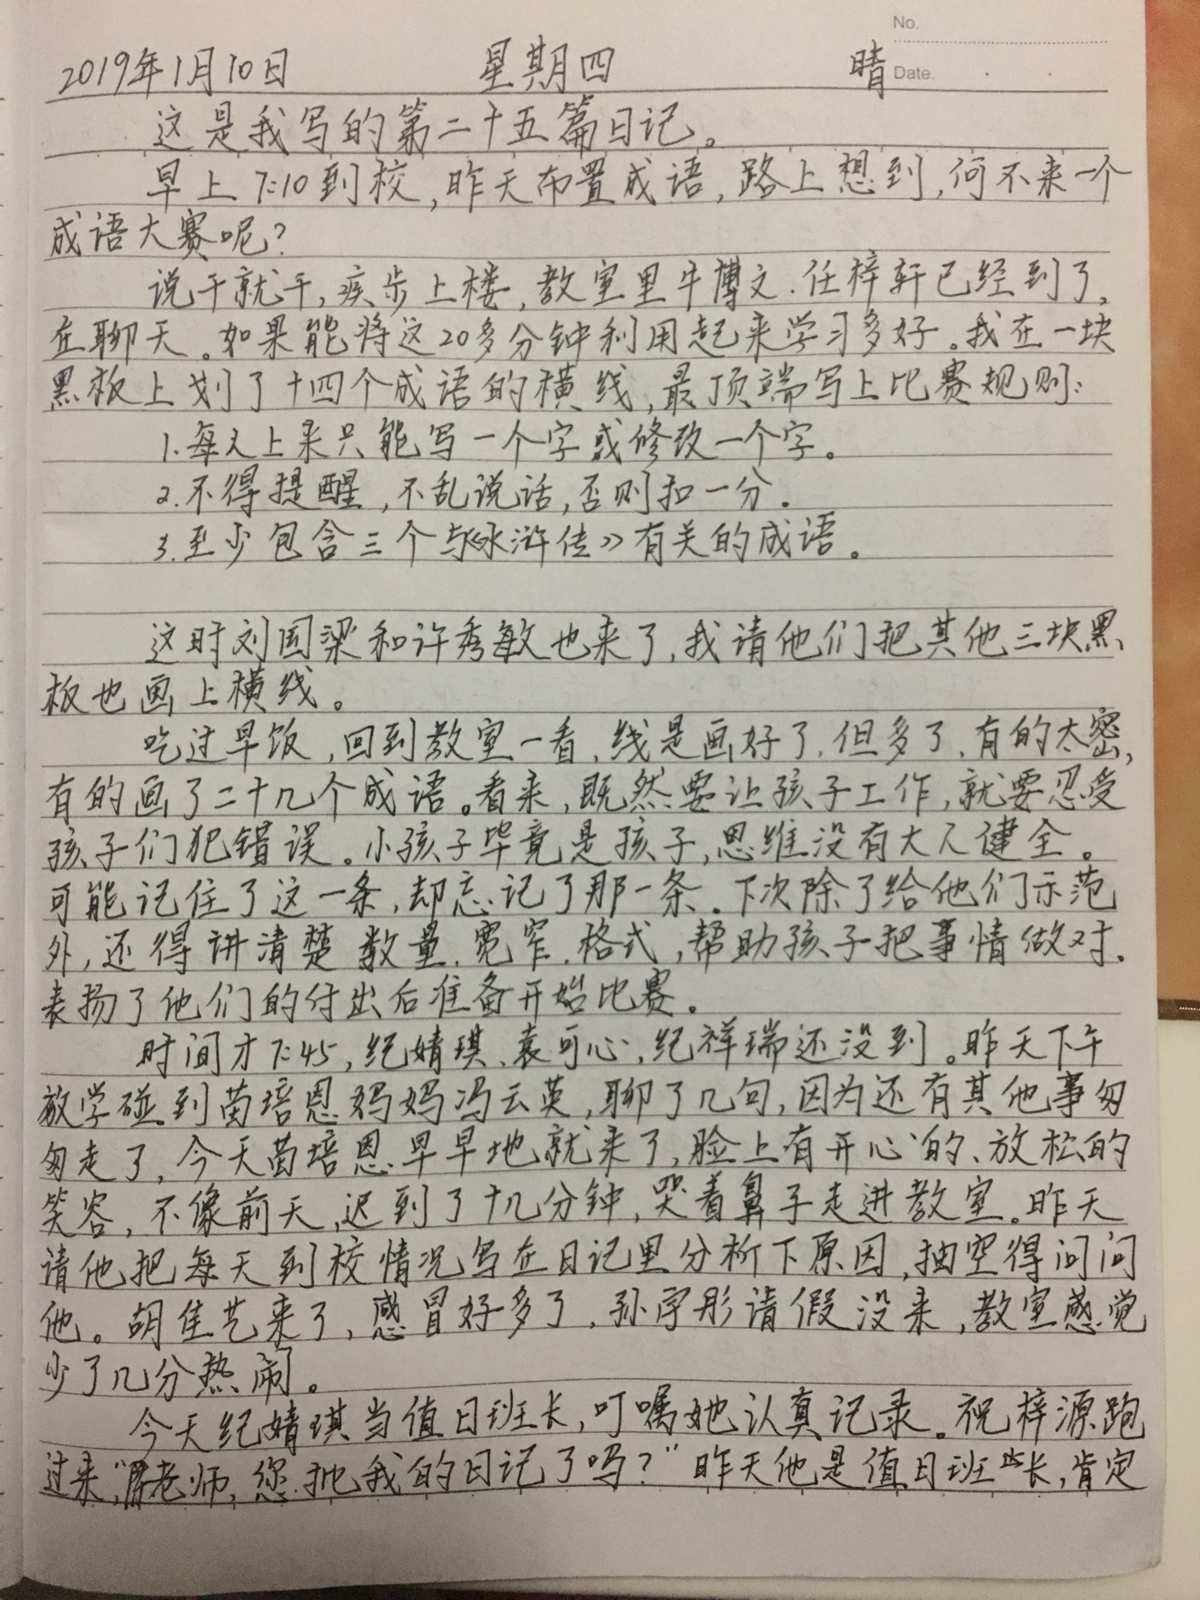 No.
2019年1月10日 星期四 晴 Date.
这是我写的第二十五篇日记。
早上7:10到校,昨天布置成语,路上想到,何不来一个
成语大赛呢?
说干就干,疾步上楼,教室里牛博文.任梓轩已经到了,
在聊天。如果能将这20多分钟利用起来学习多好。我在一块
黑板上划了十四个成语的横线,最顶端写上比赛规则:
1.每人上来只能写一个字或修改一个字。
2.不得提醒,不乱说话,否则扣一分.
3.至少包含三个与《水浒传》有关的成语。
这时刘国梁和许秀敏也来了,我请他们把其他三块黑
板也画上横线。
吃过早饭,回到教室一看,线是画好了,但多了,有的太密,
有的画了二十几个成语。看来,既然要让孩子工作,就要忍受
孩子们犯错误。小孩子毕竟是孩子,思维没有大人健全。
可能记住了这一条,却忘记了那一条.下次除了给他们示范
外,还得讲清楚数量.宽窄.格式,帮助孩子把事情做对.
表扬了他们的付出后准备开始比赛。
时间才7:45,纪婧琪、袁可心,纪祥瑞还没到。昨天下午
放学碰到苗培恩妈妈冯云英,聊了几句,因为还有其他事匆
匆走了,今天苗培恩早早地就来了,脸上有开心的、放松的
笑容,不像前天,迟到了十几分钟,哭着鼻子走进教室。昨天
请他把每天到校情况写在日记里分析下原因,抽空得问问
他。胡佳艺来了,感冒好多了,孙宇彤请假没来,教室感觉
少了几分热闹。
今天纪婧琪当值日班长,叮嘱她认真记录。祝梓源跑
过来,"老师,您批我的日记了吗?"昨天他是值日班长,肯定